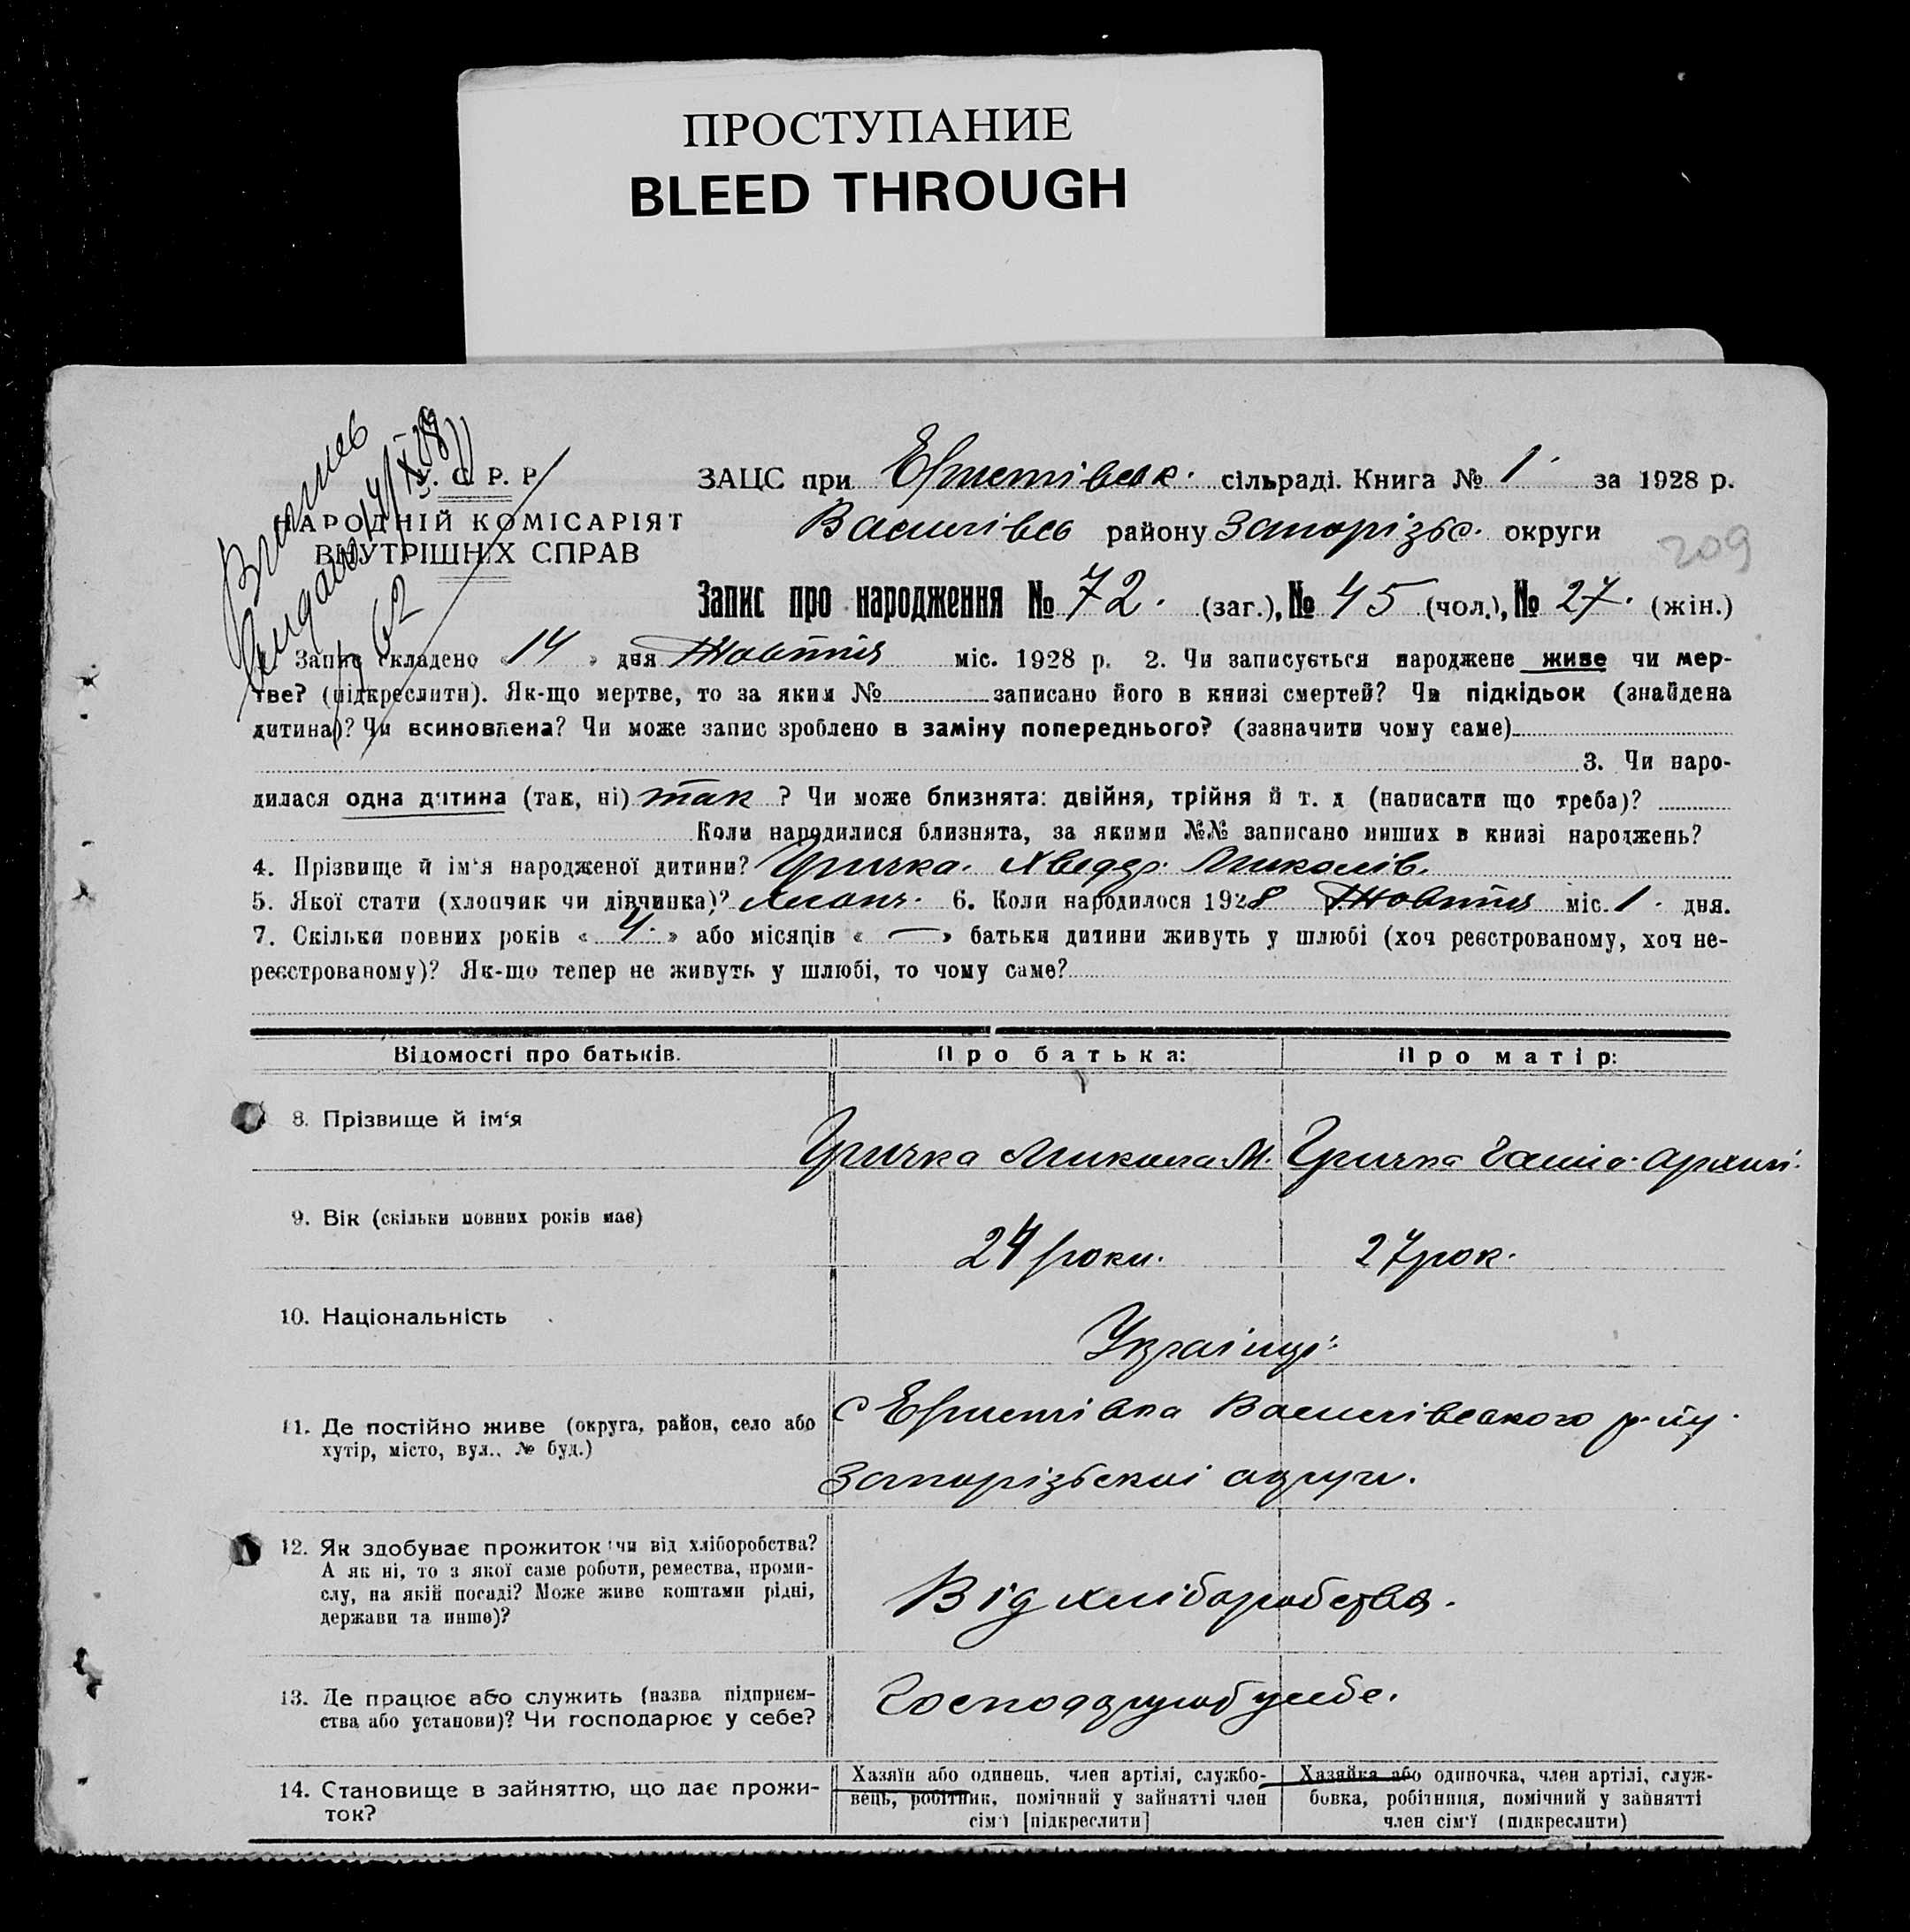 ПРОСТУПАНИЕ
BLEED THROUGH
С. Р. Р.
НАРОДНІЙ КОМІСАРІЯТ
ВНУТРІШНІХ СПРАВ
62
ЗАЦС при сільраді. Книга № 1 за 1928 р.
Василівсь району Запорізьс. округи
209
Запис про народження № 72. (заг.), № 45 (чол.), № 27. (жін.)
Запис складено « 14 » дня Жовтня міс. 1928 р. 2. Чи записується народжене живе чи мер-
тве? (підкреслити). Як-що мертве, то за яким № записано його в книзі смертей? Чи підкідьок (знайдена
дитина)? Чи всиновлена? Чи може запис зроблено в заміну попереднього? (зазначити чому саме)
3. Чи наро-
дилася одна дитина (так, ні) так ? Чи може близнята: двійня, трійня й т. д (написати що треба)?
Коли народилися близнята, за якими №№ записано инших в книзі народжень?
4. Прізвище й ім'я народженої дитини? Гричка. Хведор. Миколів.
5. Якої стати (хлопчик чи дівчинка)? хлопч. 6. Коли народилося 1928 р. Жовтня міс. 1. дня.
7. Скільки повних років « 4. » або місяців « — » батьки дитини живуть у шлюбі (хоч реєстрованому, хоч не-
реєстрованому)? Як-що тепер не живуть у шлюбі, то чому саме?
Відомості про батьків. Про батька: Про матір:
8. Прізвище й ім'я Гричка Микола М. Гричка
9. Вік (скільки повних років має) 24 роки. 27 рок.
10. Національність Українці.
11. Де постійно живе (округа, район, село або
хутір, місто, вул., № буд.)
с Василівського р-ну
Запорізької округи.
12. Як здобуває прожиток чи від хліборобства?
А як ні, то з якої саме роботи, ремества, проми-
слу, на якій посаді? Може живе коштами рідні,
держави та инше)?
Від хліборобства.
13. Де працює або служить (назва підприєм-
ства або установи)? Чи господарює у себе?
у себе.
14. Становище в зайняттю, що дає прожи-
ток?
Хазяїн або одинець, член артілі, службо-
вець, робітник, помічний у зайнятті член
сім'ї [підкреслити]
Хазяйка або одиночка, член артілі, служ-
бовка, робітниця, помічний у зайнятті
член сім'ї (підкреслити)